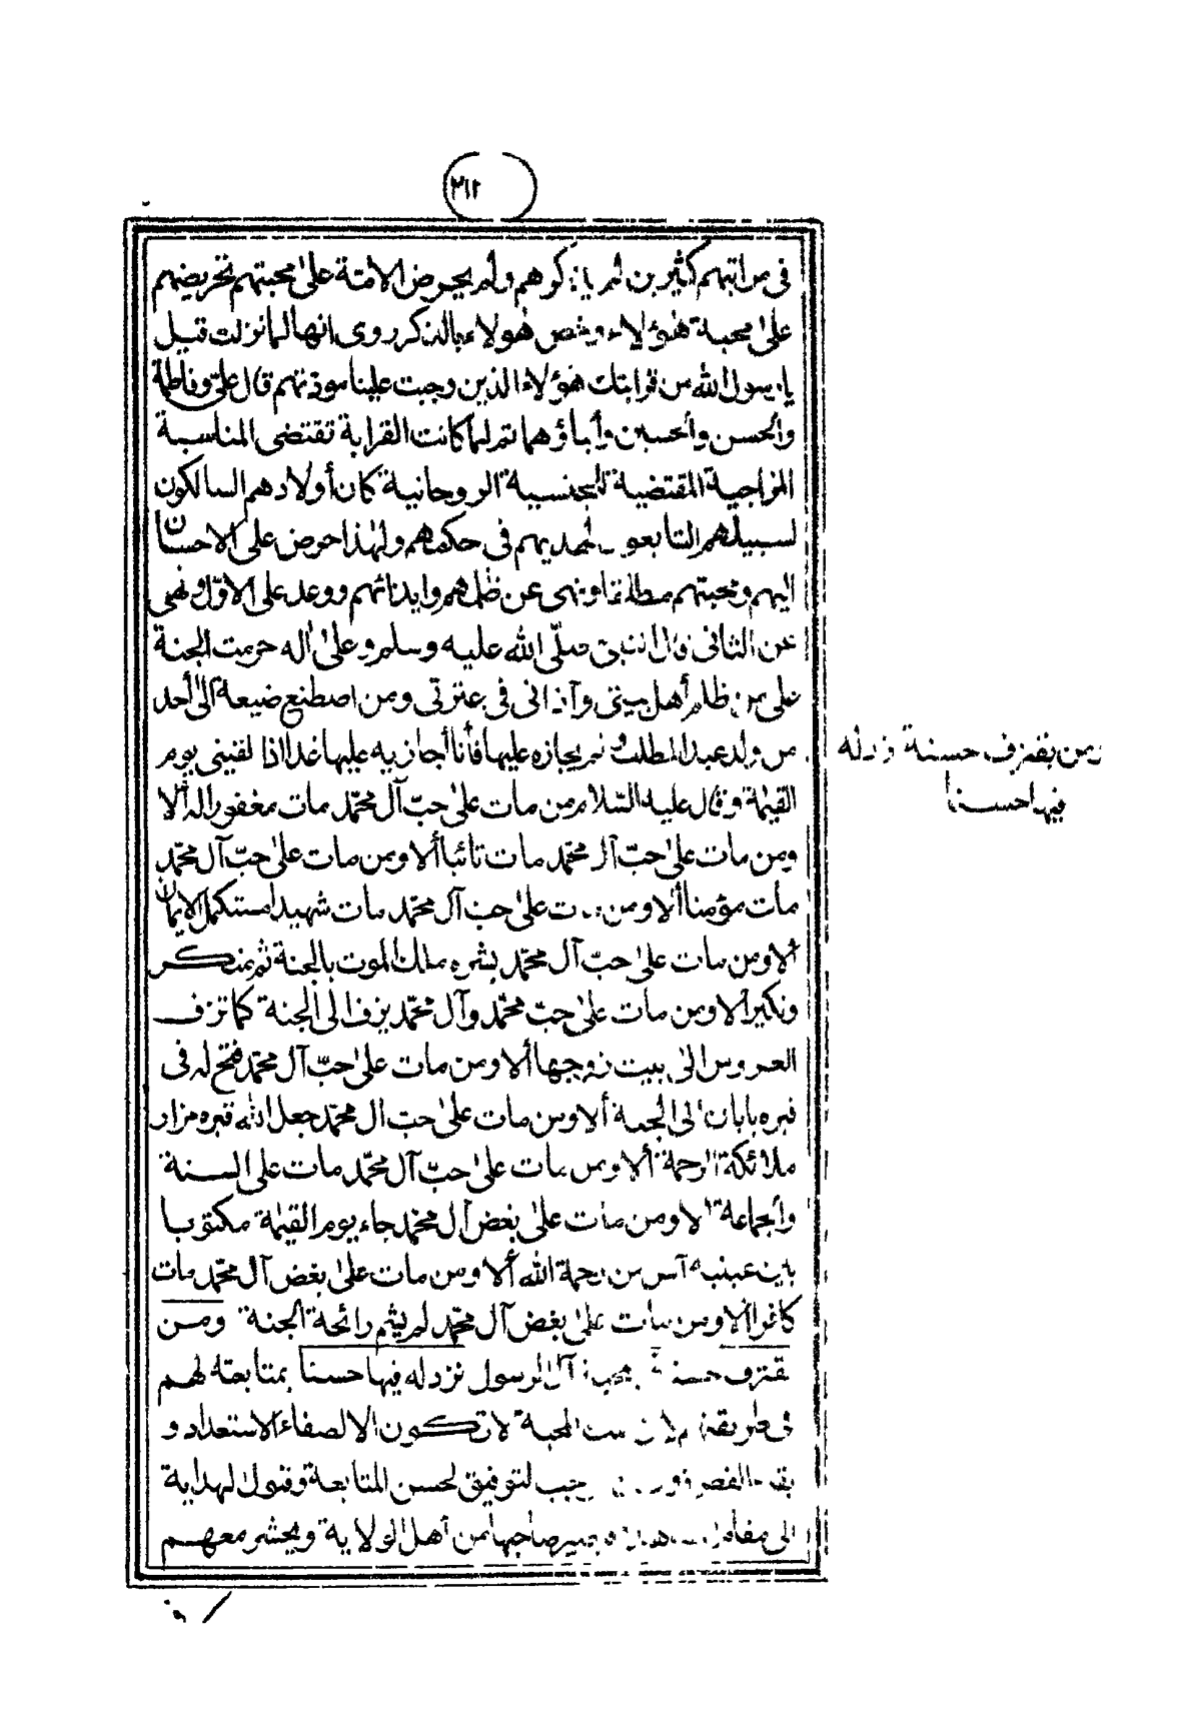 ٣١٢
في مراتبهم كثيرين لم يذكرهم ولم يحرض الامة على محبتهم تحريضهم
على محبة هؤلاء وخص هولاء بالذكر روى انها لما نزلت قيل
يا رسول الله من قرابتك هؤلاء الذين وجبت علينا مودتهم قال على وفاطمة
والحسن والحسين وأبناؤهما ثم لما كانت القرابة تقتضى المناسبة
المزاجية المقتضية للجنسية الروحانية كان أولادهم السالكون
لسبيلهم التابعون لهديهم في حكمهم ولهذا حرض على الاحسان
اليهم ومحبتهم مطلقا ونهى عن ظلمهم وايذائهم ووعد على الاوّل ونهى
عن الثانى قال النبي صلّى الله عليه وسلم وعلى آله حرمت الجنة
على من ظلم أهل بيتى وآذانى في عترتى ومن اصطنع ضيعة الى أحد
من ولد عبد المطلب و لم يجازه عليها فأنا أجازيه عليها غدا اذا لقينى يوم
القيمة وقال عليه السّلام من مات على حبّ آل محمّد مات مغفورا له ألا
ومن مات على حبّ آل محمّد مات تائبا ألا ومن مات على حبّ آل محمّد
مات مؤمنا ألا ومن مات على حبّ آل محمّد مات شهيدا مستكمل الايمان
ألا ومن مات على حبّ آل محمّد بشره ملك الموت بالجنة ثم منكر
ونكير ألا ومن مات على حبّ محمّد وآل محمّد يزف الى الجنة كما تزف
العروس الى بيت زوجها ألا ومن مات على حبّ آل محمّد فتح له في
قبره بابان الى الجنة ألا ومن مات على حبّ ال محمّد جعل الله قبره مزار
ملائكة الرحمة ألا ومن مات على حبّ آل محمّد مات على السنة
والجماعة الا ومن مات على بغض آل محمّد جاء يوم القيمة مكتوبا
بين عينيه آس من رحمة الله ألا ومن مات على بغض آل محمّد مات
كافرا ألا ومن مات على بغض آل محمّد لم يشم رائحة الجنة ومن
يقترف حسنة بمحبة آل الرسول نزد له فيها حسنا بمتابعته لهم
في طريقتهم لان المحبة لا تكون الا لصفاء الاستعداد و
لتوفيق لحسن المتابعة وقبول الهداية
الى صاحبها من أهل الولاية ويحشر معهم
ومن يقترف حسنة نزد له
فيها حسنا